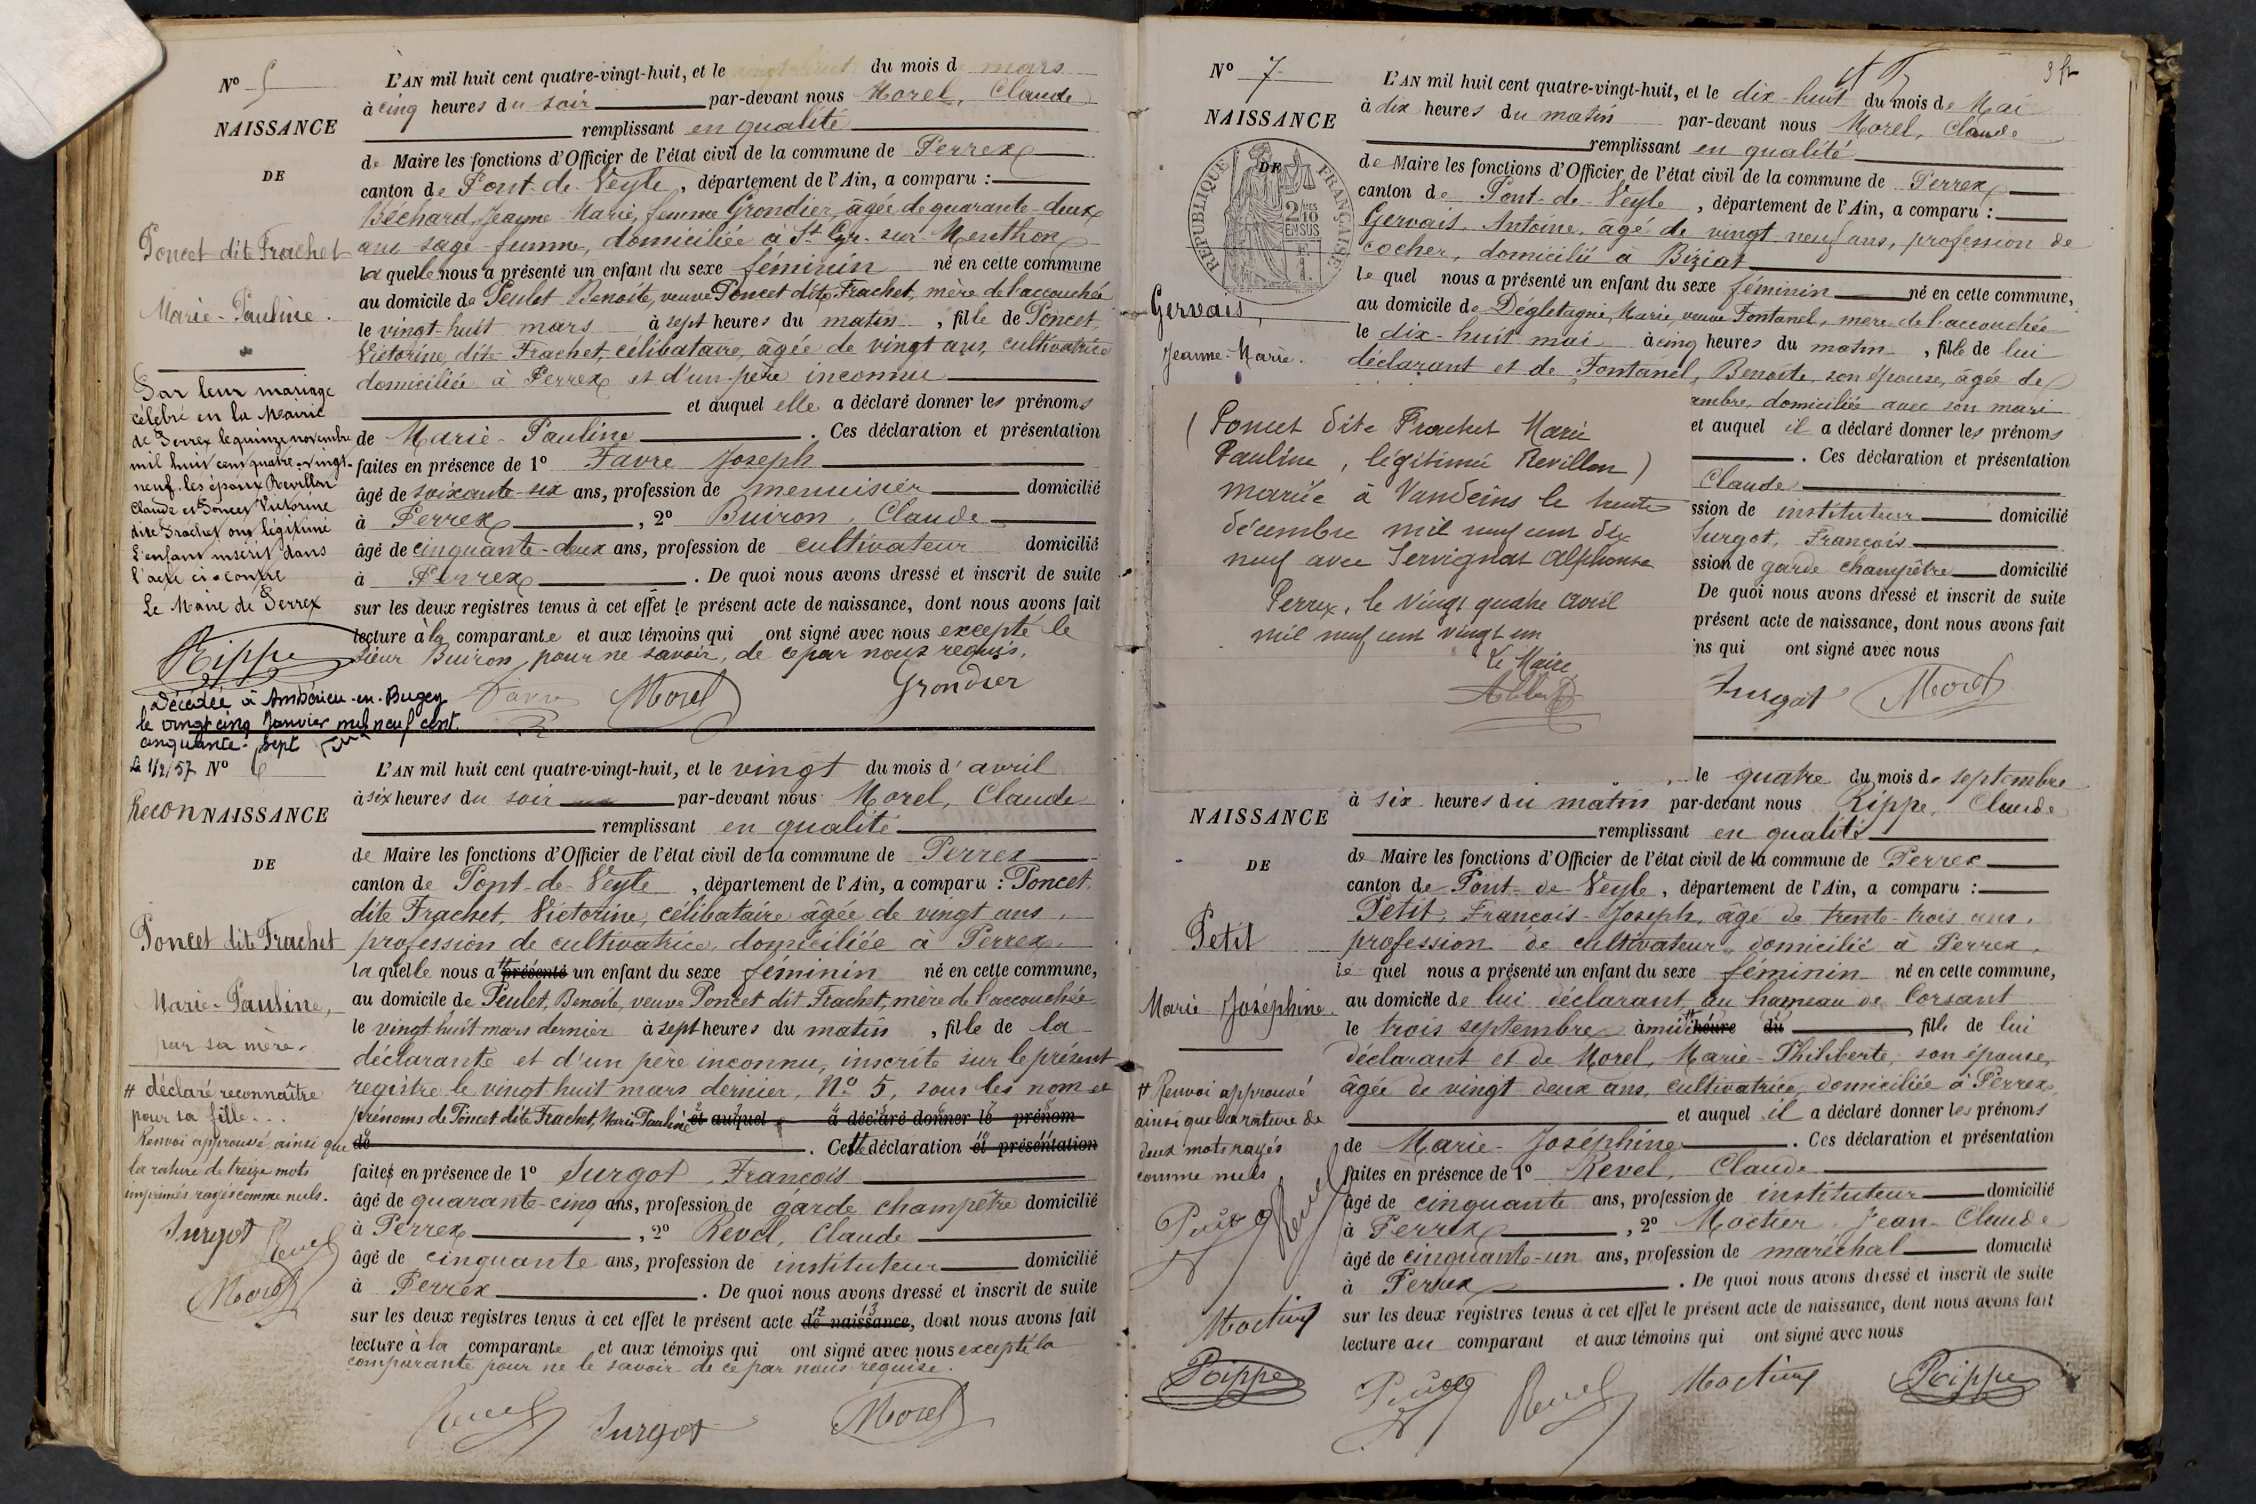 N° 5
NAISSANCE
DE
Poncet dite Frachet
Marie-Pauline.
Par leur mariage
célébré en la Mairie
de Perrex le quinze novembre
mil huit cent quatre-vingt-
neuf, les époux Revillon
Claude et Poncet Victorine
dite Frachet ont légitimé
l'enfant inscrit dans
l'acte ci-contre
Le Maire de Perrex
Rippe
Décédée à Ambérieu-en-Bugey
le vingt cinq Janvier mil neuf cent
cinquante-sept
Le 1/2/57
L'AN mil huit cent quatre-vingt-huit, et le vingt-huit du mois d mars
à cinq heures du soir par-devant nous Morel, Claude
remplissant en qualité
de Maire les fonctions d'Officier de l'état civil de la commune de Perrex
canton de Pont-de-Veyle, département de l'Ain, a comparu :
Béchard, Jeanne-Marie, femme Grondier, âgée de quarante-deux
ans sage-femme, domiciliée à St Cyr-sur-Menthon
la quelle nous a présenté un enfant du sexe féminin né en cette commune
au domicile de Peulet Benoite, veuve Poncet dite Frachet, mère de l'accouchée
le vingt-huit mars à sept heures du matin, fille de Poncet,
Victorine, dite Frachet, célibataire, âgée de vingt ans, cultivatrice
domiciliée à Perrex et d'un père inconnu
et auquel elle a déclaré donner les prénoms
de Marie-Pauline. Ces déclaration et présentation
faites en présence de 1° Favre Joseph
âgé de soixante-six ans, profession de menuisier domicilié
à Perrex, 2° Buiron, Claude
âgé de cinquante-deux ans, profession de cultivateur domicilié
à Perrex. De quoi nous avons dressé et inscrit de suite
sur les deux registres tenus à cet effet le présent acte de naissance, dont nous avons fait
lecture à la comparante et aux témoins qui ont signé avec nous excepté le
sieur Buiron, pour ne savoir, de ce par nous requis.
Favre Morel Grondier
N° 6
ReconNAISSANCE
DE
Poncet dite Frachet
Marie-Pauline,
par sa mère.
# déclaré reconnaître
pour sa fille...
Renvoi approuvé ainsi que
la rature de treize mots
imprimés rayés comme nuls.
Surgot Revel
Morel
L'AN mil huit cent quatre-vingt-huit, et le vingt du mois d'avril
à six heures du soir par-devant nous Morel, Claude
remplissant en qualité
de Maire les fonctions d'Officier de l'état civil de la commune de Perrex
canton de Pont-de-Veyle, département de l'Ain, a comparu : Poncet
dite Frachet, Victorine, célibataire âgée de vingt ans,
profession de cultivatrice, domiciliée à Perrex
la quelle nous a # présenté un enfant du sexe féminin né en cette commune,
au domicile de Peulet, Benoite, veuve Poncet dit Frachet, mère de l'accouchée
le vingt-huit mars dernier à sept heures du matin, fille de la
déclarante et d'un père inconnu, inscrite sur le présent
registre le vingt huit mars dernier, N° 5, sous les nom et
prénoms de Poncet dite Frachet, Marie Pauline et auquel a déclaré donner le prénom
de. Cette déclaration et présentation
faites en présence de 1° Surgot, François
âgé de quarante-cinq ans, profession de garde champêtre domicilié
à Perrex, 2° Revel, Claude
âgé de cinquante ans, profession de instituteur domicilié
à Perrex. De quoi nous avons dressé et inscrit de suite
sur les deux registres tenus à cet effet le présent acte de naissance, dont nous avons fait
lecture à la comparante et aux témoins qui ont signé avec nous excepté la
comparante pour ne le savoir de ce par nous requise.
Revel Surgot Morel
N° 7
NAISSANCE
DE
RÉPUBLIQUE FRANÇAISE
2/10 EN SUS
Gervais,
Jeanne-Marie.
L'AN mil huit cent quatre-vingt-huit, et le dix-huit du mois de Mai
à dix heures du matin par-devant nous Morel, Claude
remplissant en qualité
de Maire les fonctions d'Officier de l'état civil de la commune de Perrex
canton de Pont-de-Veyle, département de l'Ain, a comparu :
Gervais, Antoine, âgé de vingt-neuf ans, profession de
cocher, domicilié à Biziat
le quel nous a présenté un enfant du sexe féminin né en cette commune,
au domicile de Dégletagne, Marie, veuve Fontanel, mère de l'accouchée
le dix-huit mai à cinq heures du matin, fille de lui
déclarant et de Fontanel, Benoite, son épouse, âgée de
ambre, domiciliée avec son mari
et auquel il a déclaré donner les prénoms
. Ces déclaration et présentation
Claude
ssion de instituteur domicilié
Surgot, François
ssion de garde champêtre domicilié
De quoi nous avons dressé et inscrit de suite
présent acte de naissance, dont nous avons fait
ins qui ont signé avec nous
Surgot Morel
(Poncet dite Frachet Marie
Pauline, légitimée Revillon)
mariée à Vandeins le trente
décembre mil neuf cent dix
neuf avec Servignat Alphonse
Perrex, le vingt quatre avril
mil neuf cent vingt un
Le Maire
NAISSANCE
DE
Petit
Marie Joséphine.
# Renvoi approuvé
ainsi que la rature de
deux mots rayés
comme nuls
Petit Revel
Moctier
Rippe
le quatre du mois de septembre
à six heures du matin par-devant nous Rippe, Claude
remplissant en qualité
de Maire les fonctions d'Officier de l'état civil de la commune de Perrex
canton de Pont-de-Veyle, département de l'Ain, a comparu :
Petit, François-Joseph, âgé de trente-trois ans,
profession de cultivateur domicilié à Perrex,
le quel nous a présenté un enfant du sexe féminin né en cette commune,
au domicile de lui déclarant, au hameau de Corsant
le trois septembre à midi # heure du, fille de lui
déclarant et de Morel, Marie-Philiberte, son épouse,
âgée de vingt deux ans, cultivatrice, domiciliée à Perrex
et auquel il a déclaré donner les prénoms
de Marie-Joséphine. Ces déclaration et présentation
faites en présence de 1° Revel, Claude
âgé de cinquante ans, profession de instituteur domicilié
à Perrex, 2° Moctier Jean-Claude
âgé de cinquante-un ans, profession de maréchal domicilié
à Perrex. De quoi nous avons dressé et inscrit de suite
sur les deux registres tenus à cet effet le présent acte de naissance, dont nous avons fait
lecture au comparant et aux témoins qui ont signé avec nous
Petit Revel Moctier Rippe